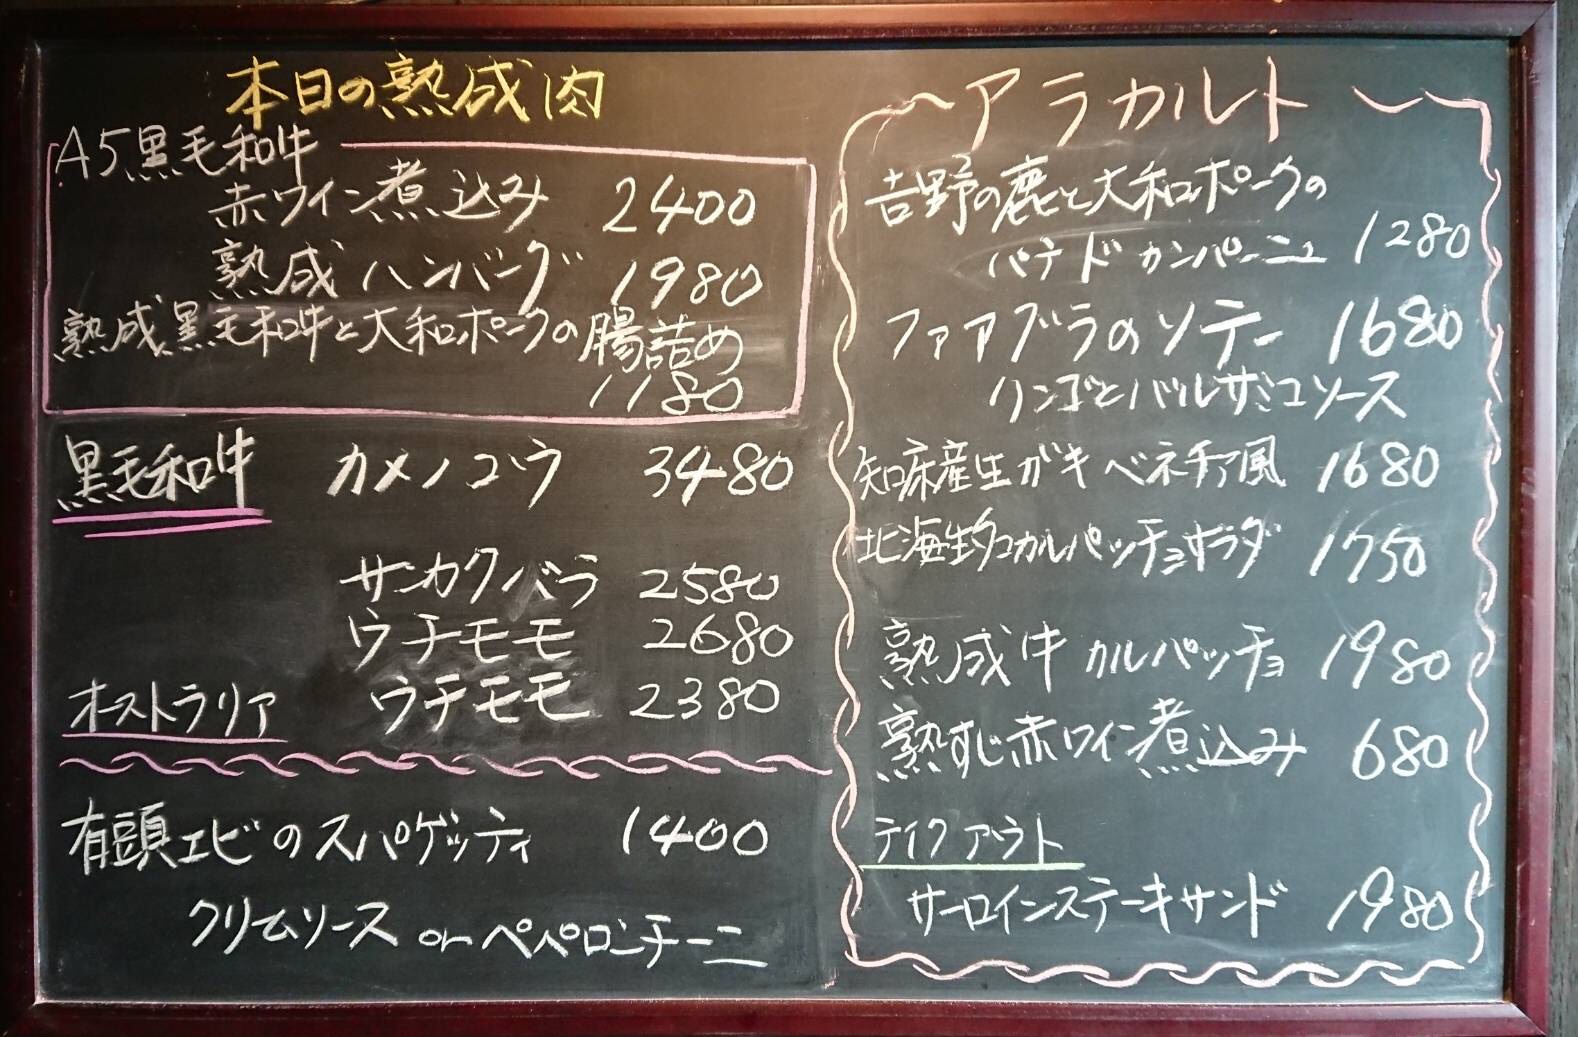 本日の熟成肉
A5黒毛和牛
赤ワイン煮込み 2400
熟成ハンバーグ 1980
熟成黒毛和牛と大和ポークの腸詰め
1180
黒毛和牛 カメノコウ 3480
サンカクバラ 2580
ウチモモ 2680
オーストラリア ウチモモ 2380
有頭エビのスパゲッティ 1400
クリームソース or ペペロンチーニ
アラカルト
吉野の鹿と大和ポークの
パテドカンパーニュ 1280
フォアグラのソテー 1680
リンゴとバルサミコソース
知床産生ガキ ベネチア風 1680
北海生タコカルパッチョサラダ 1750
熟成牛カルパッチョ 1980
熟すじ赤ワイン煮込み 680
テイクアウト
サーロインステーキサンド 1980